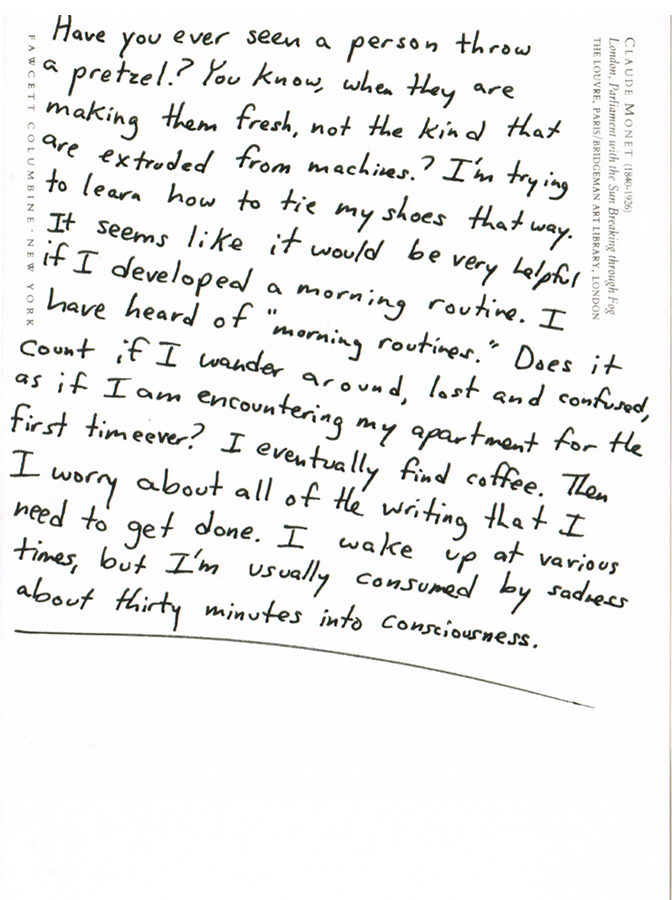 Have you ever seen a person throw
a pretzel? You know, when they are
making them fresh, not the kind that
are extruded from machines? I'm trying
to learn how to tie my shoes that way.
It seems like it would be very helpful
if I developed a morning routine. I
have heard of "morning routines." Does it
count if I wander around, lost and confused,
as if I am encountering my apartment for the
first timeever? I eventually find coffee. Then
I worry about all of the writing that I
need to get done. I wake up at various
times, but I'm usually consumed by sadness
about thirty minutes into consciousness.
CLAUDE MONET (1840-1926)
London, Parliament with the Sun Breaking through Fog
THE LOUVRE, PARIS/BRIDGEMAN ART LIBRARY, LONDON
FAWCETT COLUMBINE · NEW YORK